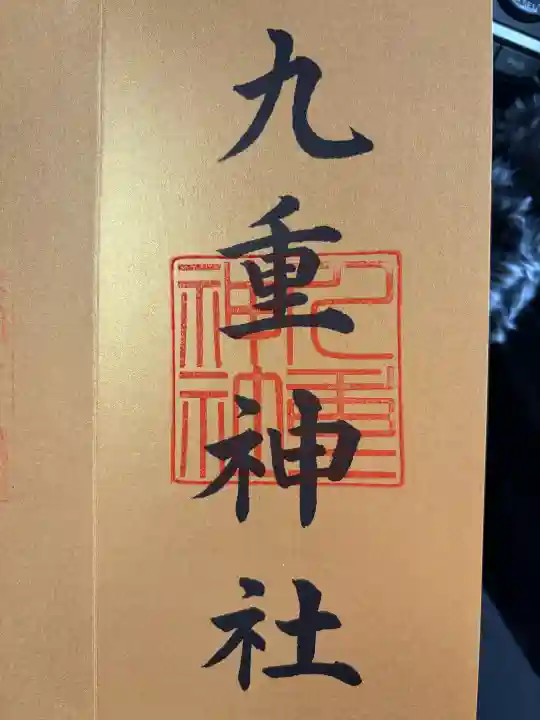 九重神社
九重
神社